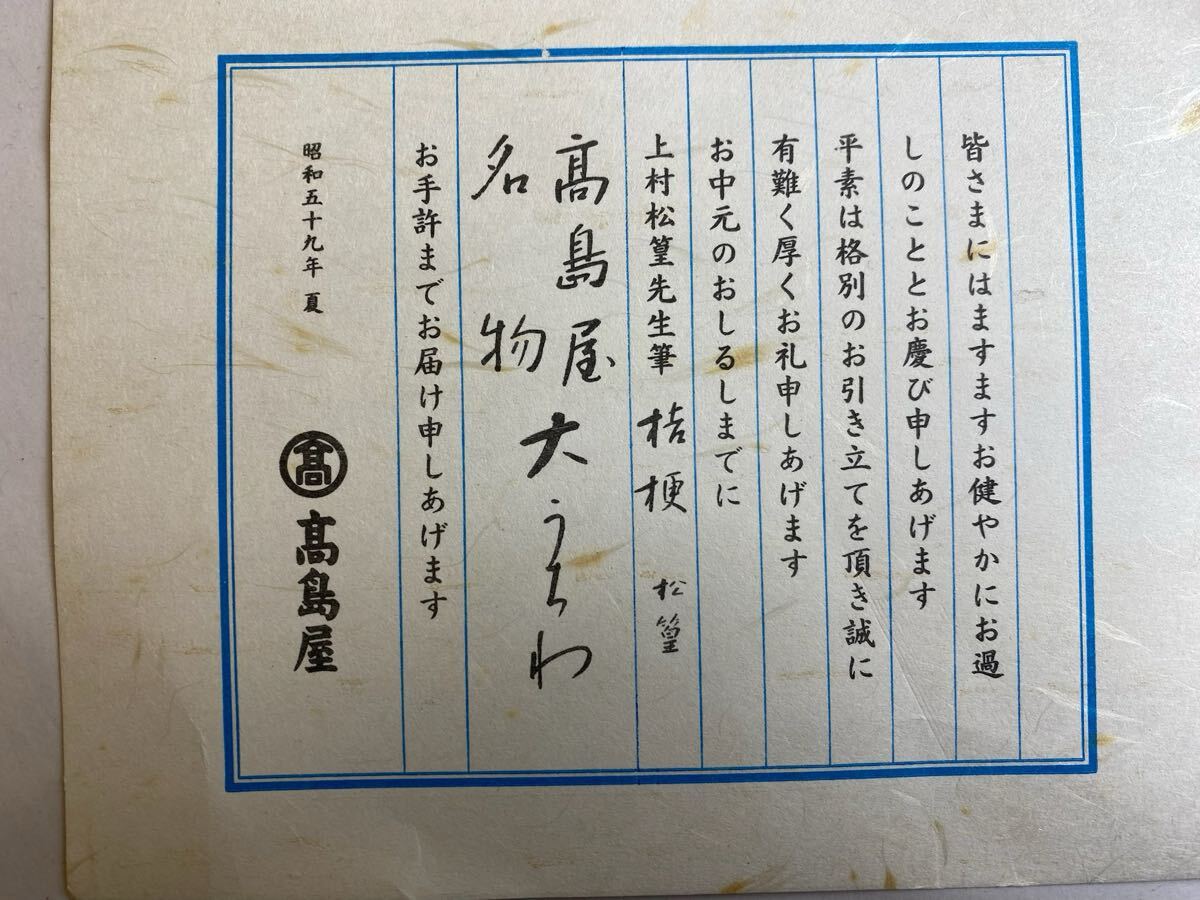 皆さまにはますますお健やかにお過
しのこととお慶び申しあげます
平素は格別のお引き立てを頂き誠に
有難く厚くお礼申しあげます
お中元のおしるしまでに
上村松篁先生筆 桔梗 松篁
髙島屋
名物
大うちわ
お手許までお届け申しあげます
昭和五十九年 夏
髙 髙島屋